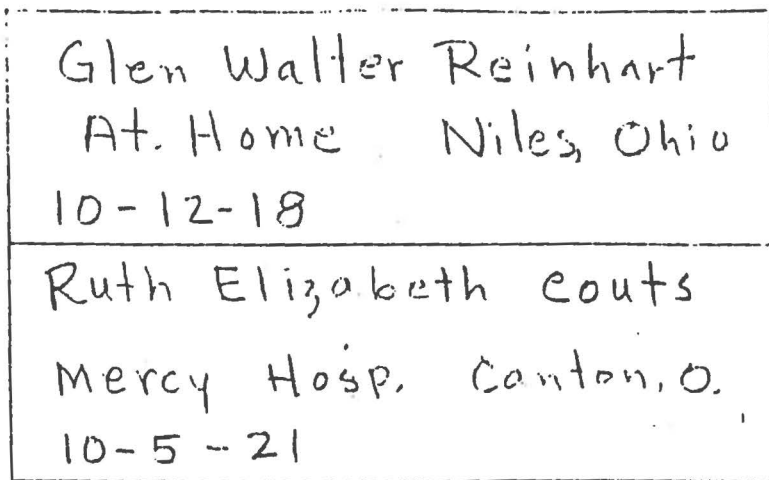 Glen Walter Reinhart
At. Home Niles, Ohio
10-12-18
Ruth Elizabeth Couts
Mercy Hosp. Canton, O.
10-5-21